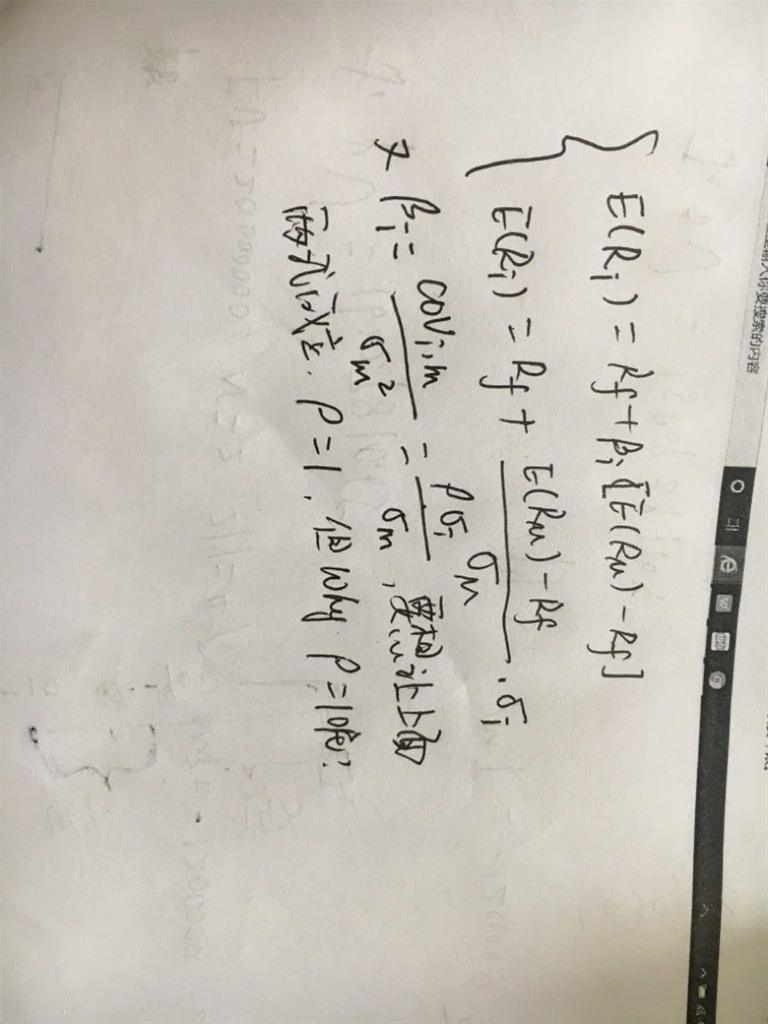 E(Ri) = Rf + βi [E(RM) - Rf]
E(Ri) = Rf + E(RM) - Rf / σM · σi
又 βi = covi,m / σm² = ρσi / σm , 要想让上面
两式成立. ρ=1, 但why ρ=1呢?
你要搜索的内容